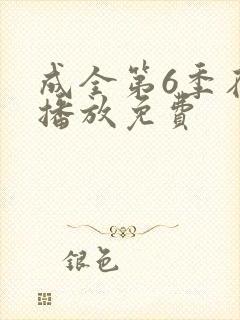 成全第6季在
播放免費
银色